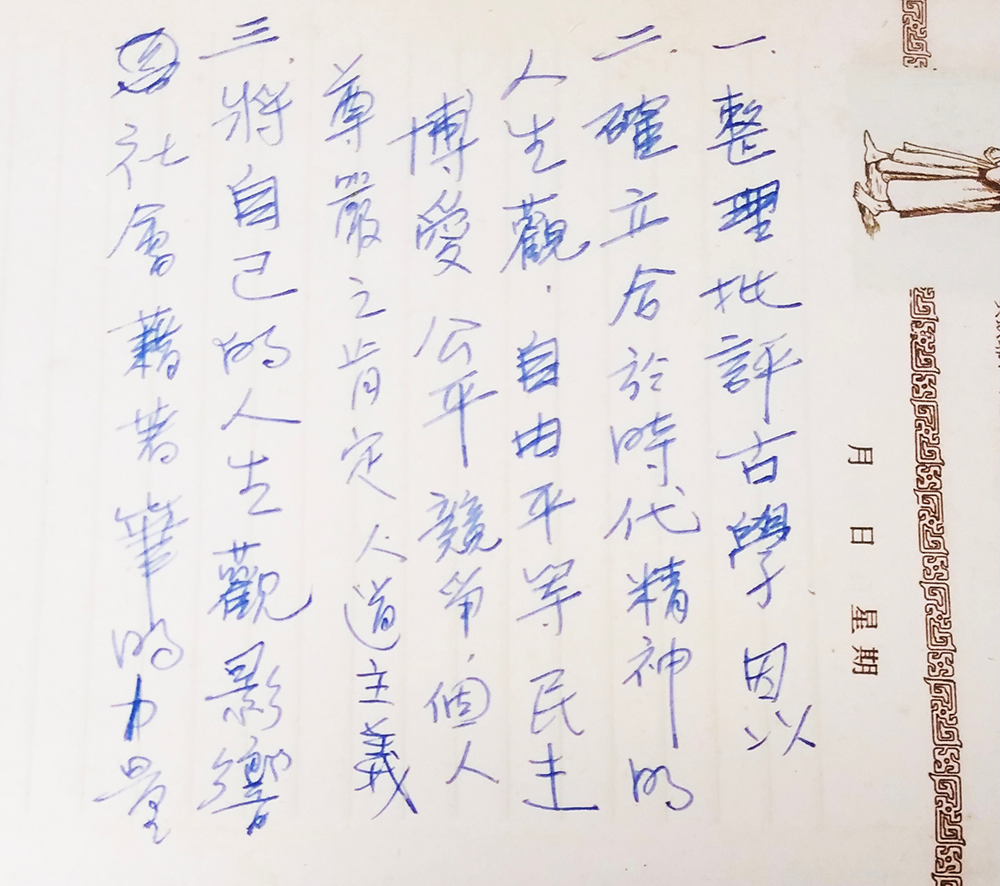 月 日 星期
一.整理批評古學因以
二.確立合於時代精神的
人生觀.自由平等民主
博愛公平競爭.個人
尊嚴之肯定人道主義
三.將自己的人生觀影響
社會藉著筆的力量